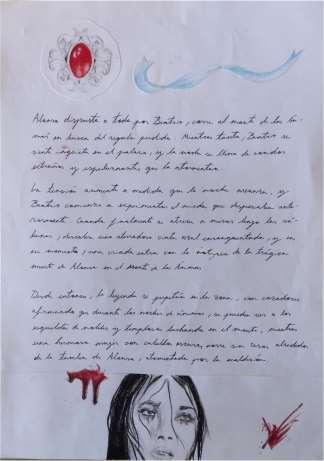 Alonso dispuesto a todo por Beatriz, corre al monte de las
en busca del regalo perdido. Mientras tanto, Beatriz se
siente inquieta en el palacio, y la noche se llena de sonidos
extraños y espeluznantes que la atormentan.
La tensión aumenta a medida que la noche avanza, y
Beatriz comienza a experimentar el miedo que despreciaba ante-
riormente. Cuando finalmente se atreve a mirar
descubre una cinta azul ensangrentada, y en
ese momento, una criada entra con la noticia de la trágica
muerte de Alonso en el monte de las ánimas.
Desde entonces, la leyenda se perpetúa en la zona, con cazadores
afirmando que durante las noches de ánimas, se pueden ver a los
esqueletos de nobles y templarios luchando en el monte, mientras
una hermosa mujer con cabellos corre sin cesar alrededor
de la tumba de Alonso, atormentada por la maldición.